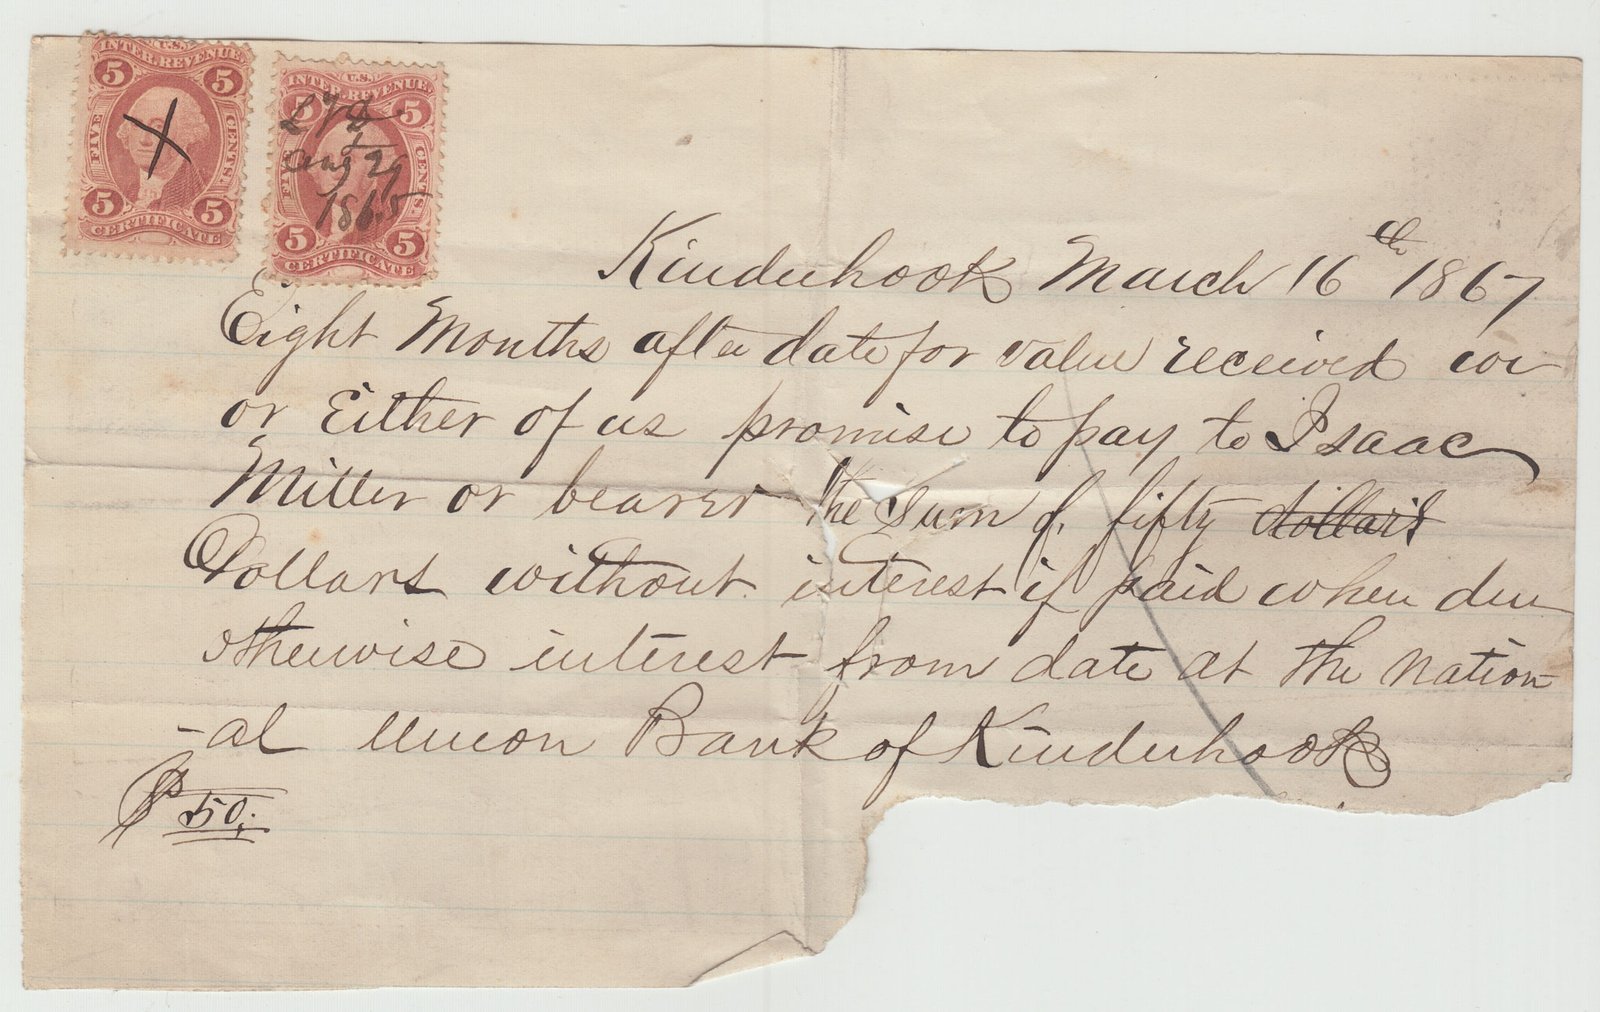 U.S.
INTER. REVENUE
5 5
FIVE CENTS.
X
5 5
CERTIFICATE
U.S.
INTER. REVENUE
5 5
FIVE CENTS.
Aug 29
1865
5 5
CERTIFICATE
Kinderhook March 16th 1867
Eight Months after date for value received we
or Either of us promise to pay to Isaac
Miller or bearer the Sum of fifty dollars
Dollars without interest if paid when due
otherwise interest from date at the Nation
-al Union Bank of Kinderhook
$50.